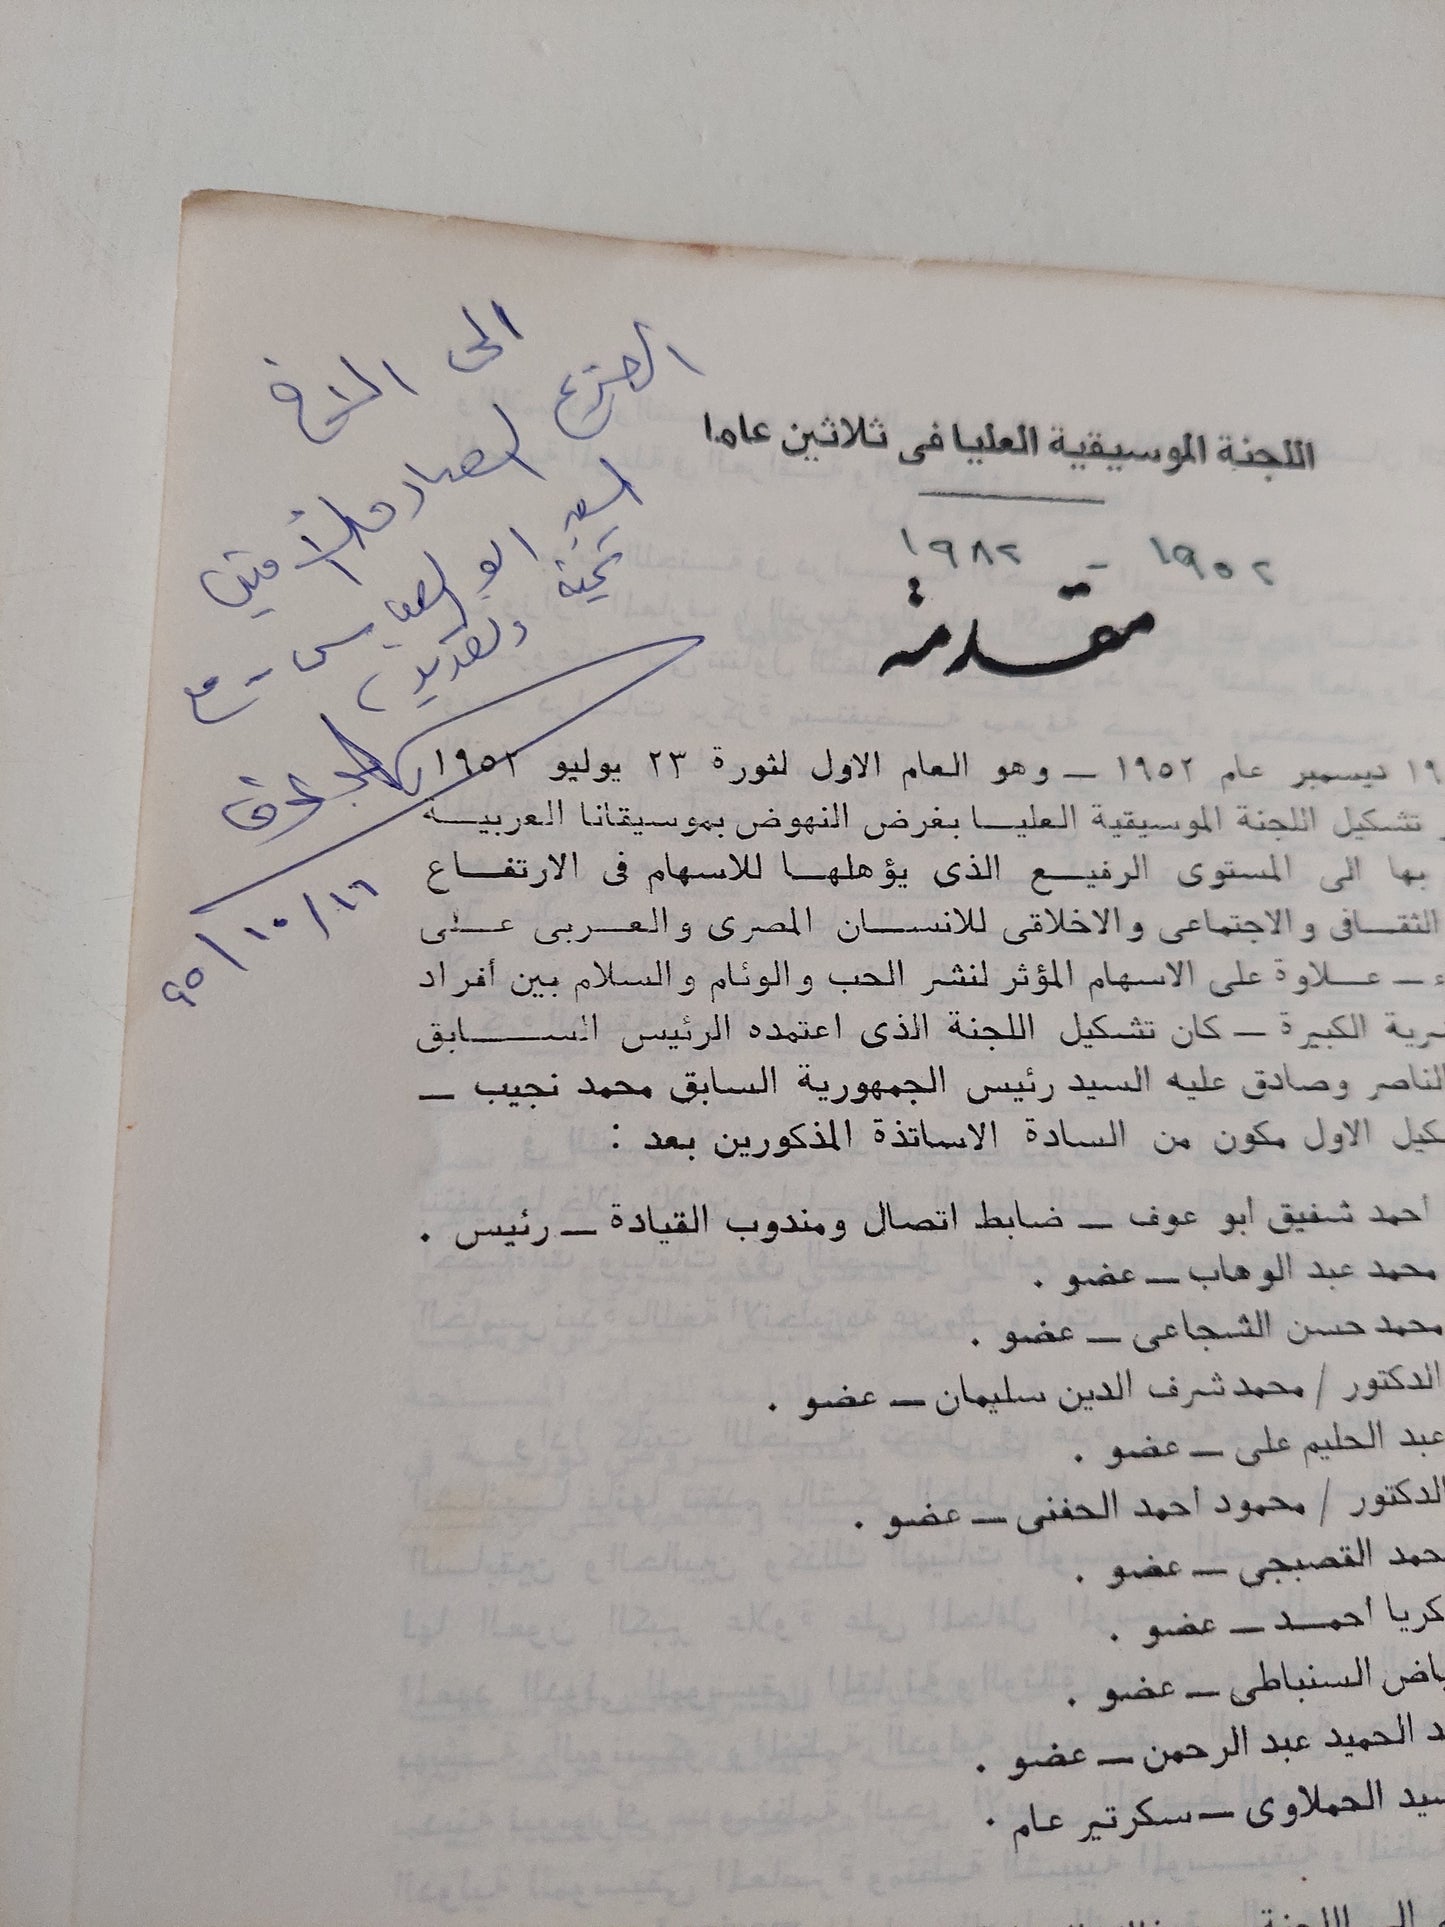 الى الاخ
العزيز
السيد ابو العباس - مع
تحية وتقدير
٩٥/١٠/١٦
اللجنة الموسيقية العليا فى ثلاثين عاما
١٩٥٢ - ١٩٨٢
مقدمة
ديسمبر عام ١٩٥٢ — وهو العام الاول لثورة ٢٣ يوليو ١٩٥٢
تشكيل اللجنة الموسيقية العليا بغرض النهوض بموسيقانا العربية
بها الى المستوى الرفيع الذى يؤهلها للاسهام فى الارتفاع
الثقافى والاجتماعى والاخلاقى للانسان المصرى والعربى على
ء — علاوة على الاسهام المؤثر لنشر الحب والوئام والسلام بين أفراد
سرية الكبيرة — كان تشكيل اللجنة الذى اعتمده الرئيس السابق
لناصر وصادق عليه السيد رئيس الجمهورية السابق محمد نجيب —
كيل الاول مكون من السادة الاساتذة المذكورين بعد :
أحمد شفيق أبو عوف — ضابط اتصال ومندوب القيادة — رئيس .
محمد عبد الوهاب — عضو .
محمد حسن الشجاعى — عضو .
الدكتور / محمد شرف الدين سليمان — عضو .
عبد الحليم على — عضو .
الدكتور / محمود أحمد الحفنى — عضو .
حمد القصبجى — عضو .
كريا أحمد — عضو .
ياض السنباطى — عضو .
د الحميد عبد الرحمن — عضو .
سيد الحملاوى — سكرتير عام .